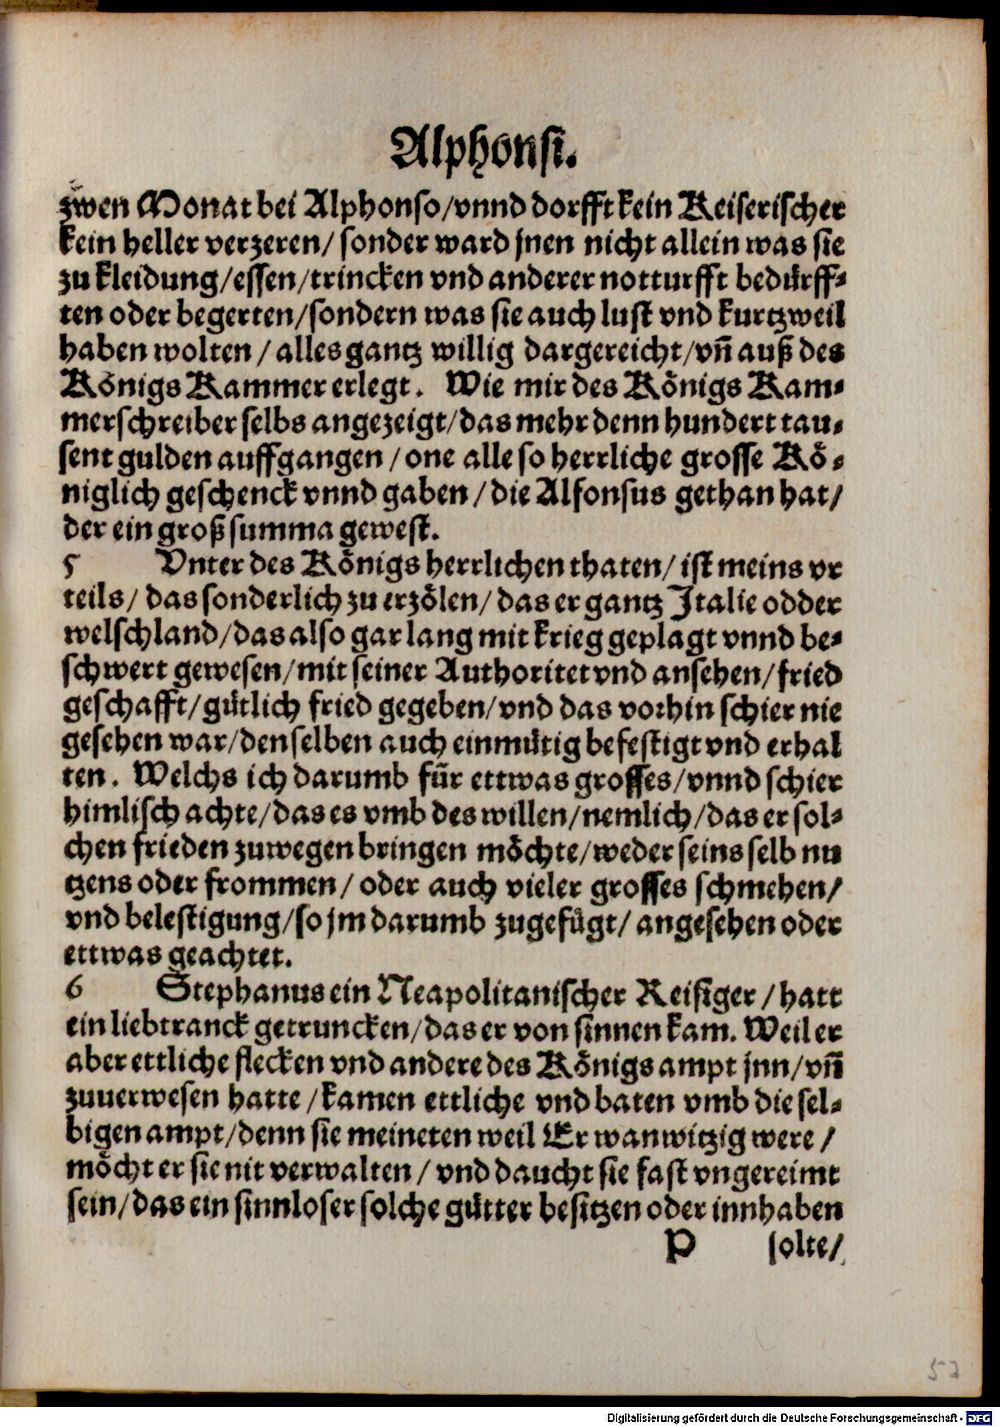 Alphonsi.
zwen Monat bei Alphonso/vnnd dorfft kein Keiserischer
kein heller verzeren/ sonder ward jnen nicht allein was sie
zu kleidung/essen/trincken vnd anderer notturfft bedürff-
ten oder begerten/sondern was sie auch lust vnd kurtzweil
haben wolten / alles gantz willig dargereicht/vñ auß des
Königs Kammer erlegt. Wie mir des Königs Kam-
merschreiber selbs angezeigt/das mehr denn hundert tau-
sent gulden auffgangen / one alle so herrliche grosse Kö-
niglich geschenck vnnd gaben / die Alfonsus gethan hat/
der ein groß summa gewest.
5 Vnter des Königs herrlichen thaten/ ist meins vr
teils/ das sonderlich zu erzölen/ das er gantz Italie odder
welschland/das also gar lang mit krieg geplagt vnnd be-
schwert gewesen/mit seiner Authoritet vnd ansehen/ fried
geschafft/gütlich fried gegeben/vnd das vorhin schier nie
gesehen war/denselben auch einmütig befestigt vnd erhal
ten. Welchs ich darumb für ettwas grosses/vnnd schier
himlisch achte/das es vmb des willen/nemlich/das er sol-
chen frieden zuwegen bringen möchte/weder seins selb nu
tzens oder frommen/ oder auch vieler grosses schmehen/
vnd belestigung/so jm darumb zugefügt/ angesehen oder
ettwas geachtet.
6 Stephanus ein Neapolitanischer Reisiger / hatt
ein liebtranck getruncken/das er von sinnen kam. Weil er
aber ettliche flecken vnd andere des Königs ampt jnn/vñ
zuuerwesen hatte / kamen ettliche vnd baten vmb die sel-
bigen ampt/denn sie meineten weil Er wanwitzig were /
möcht er sie nit verwalten / vnd daucht sie fast vngereimt
sein/das ein sinnloser solche gütter besitzen oder innhaben
P solte/
57
Digitalisierung gefördert durch die Deutsche Forschungsgemeinschaft - DFG